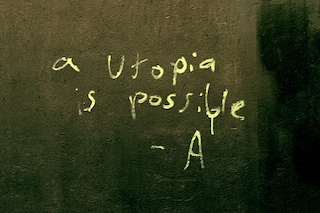 a utopia
is possible
- A